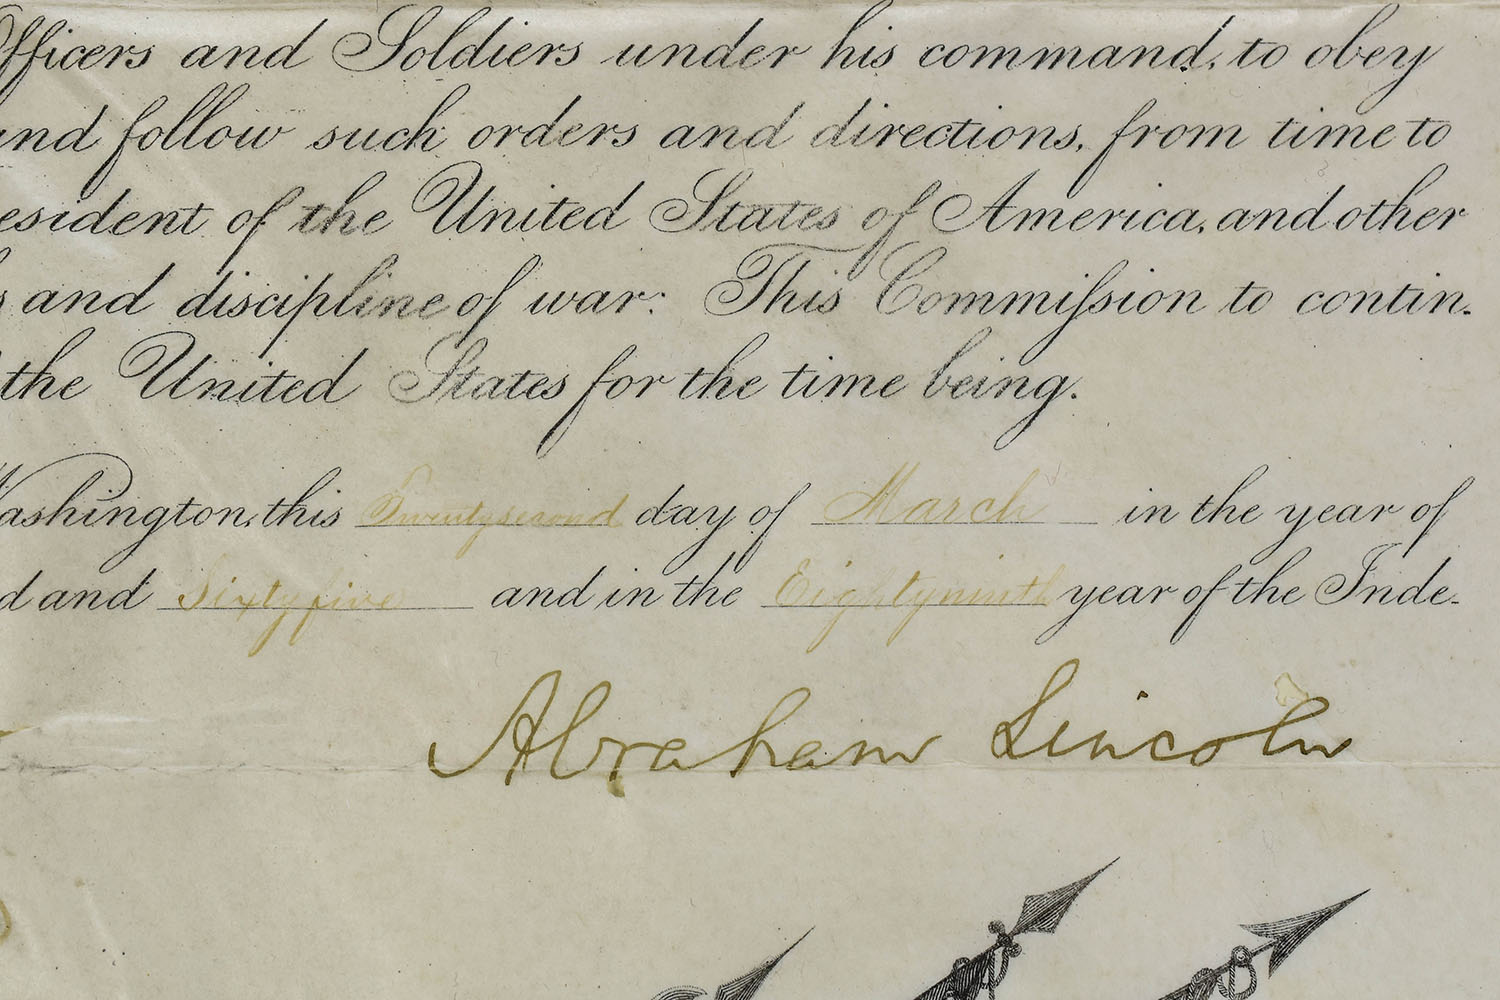 Officers and Soldiers under his command, to obey
and follow such orders and directions, from time to
esident of the United States of America, and other
s and discipline of war: This Commiſsion to contin.
the United States for the time being.
Washington, this Twenty second day of March in the year of
d and Sixty five and in the Eighty ninth year of the Inde-
Abraham Lincoln